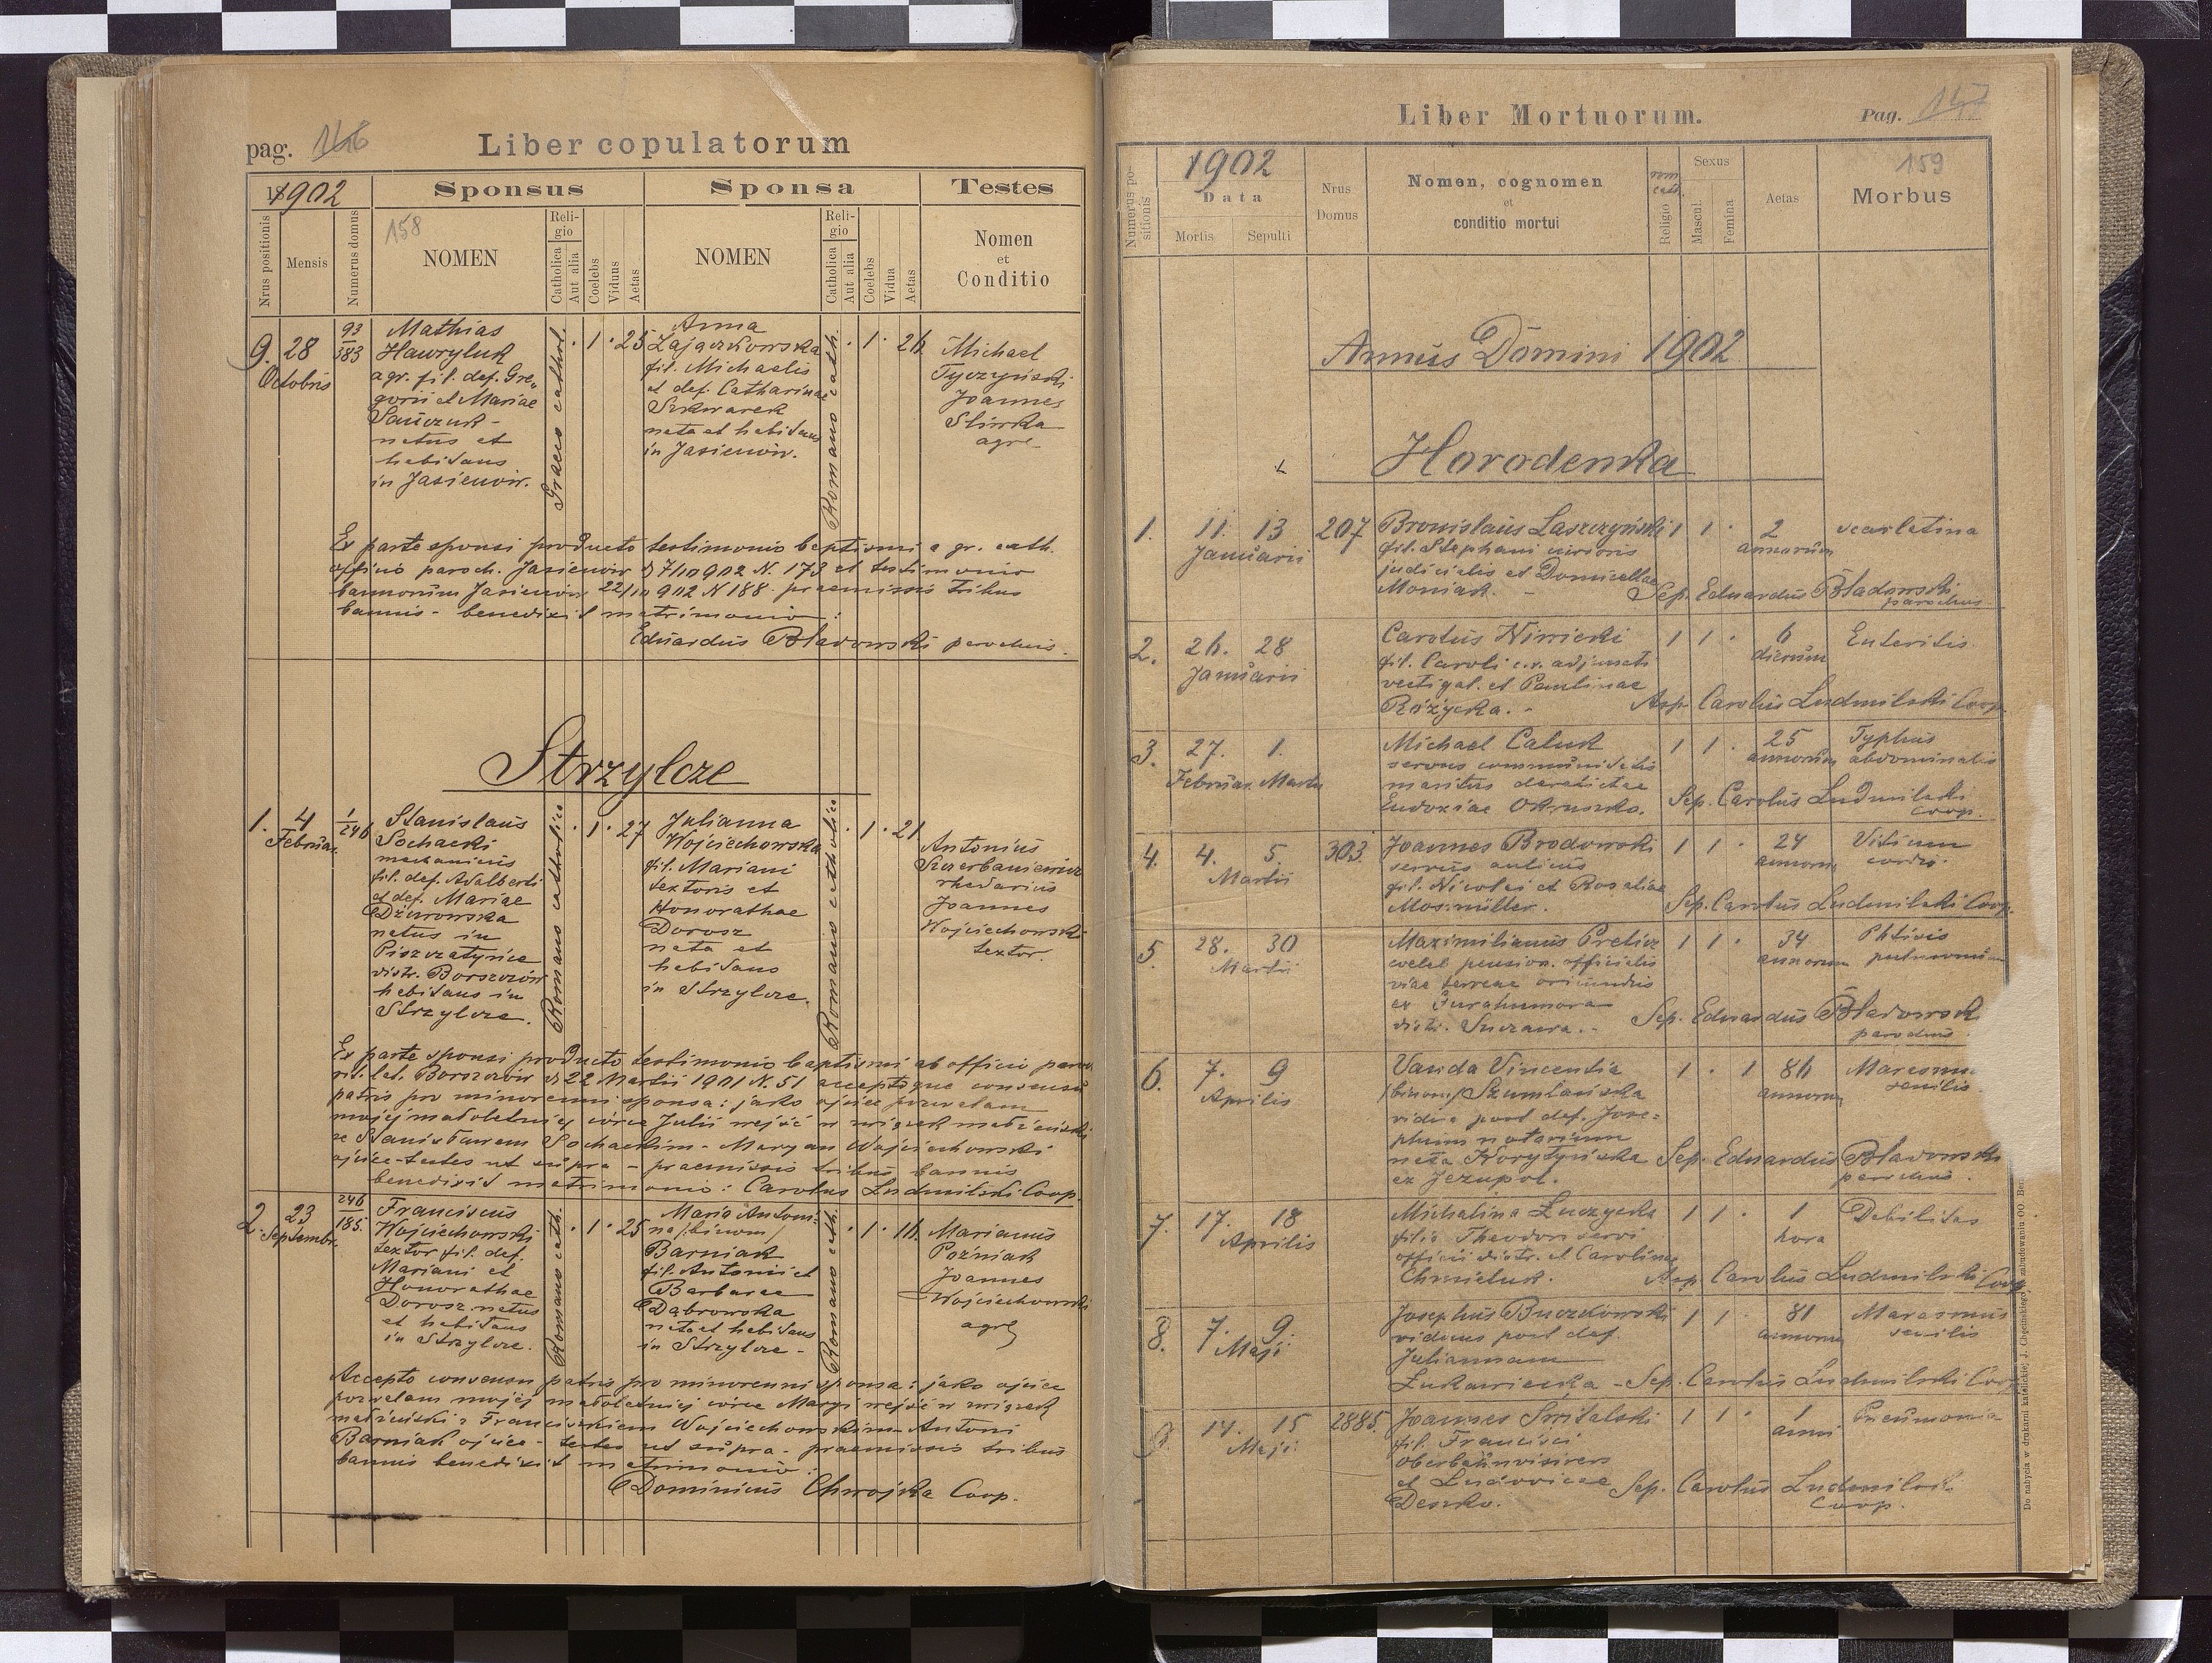 pag. 146
Liber copulatorum
1902
Sponsus
Sponsa
Testes
Nrus positionis
Mensis
Numerus domus
158
NOMEN
Religio
Catholica
Aut alia
Coelebs
Viduus
Aetas
NOMEN
Religio
Catholica
Aut alia
Coelebs
Vidua
Aetas
Nomen
et
Conditio
9. 28
Octobris
93
383
Mathias
Hawryluk
agr. fil. def. Gre„
gorii et Mariae
Sawczuk -
natus et
habitans
in Jasienow.
Graeco cathol.
· 1 · 25
Anna
Zajączkowska
fil. Michaelis
et def. Catharinae
Szkwarek
nata et habitans
in Jasienow.
Romano cath.
· 1 · 26
Michael
Tyczyński
Joannes
agr.
Ex parte sponsi producto testimonio baptismi a gr. cath.
officio paroch. Jasienow d 7/10 902 N. 173 et testimonio
bannorum Jasienow 22/10 902 N 188 praemissis tribus
bannis - benedixit matrimonio:
Eduardus Bładowski parochus.
Strzylcze
1. 4
Februar.
1
246
Stanislaus
Sochacki
mechanicus
fil. def. Adalberti
et def. Mariae
Dżurowska
natus in
Piszczatynce
distr. Borszczów
habitans in
Strzylcze.
Romano catholico
· 1 · 27
Julianna
Wojciechowska
fil. Mariani
textoris et
Honorathae
Dorosz
nata et
habitans
in Strzylcze.
Romano catholico
· 1 · 21
Antonius
Szczerbaniewicz
rhedarius
Joannes
Wojciechowski
textor.
Ex parte sponsi producto testimonio baptismi ab officio paro
rit. lat. Borszczów d 22 Martii 1901 N. 51 acceptoque consensu
patris pro minorenni sponsa: jako ojciec pozwalam
mojej małoletniej córce Julii wejść w związek małżeński
ze Stanisławem Sochackim - Maryan Wojciechowski
ojciec - testes ut supra - praemissis tribus bannis
benedixit matrimonio: Carolus Ludmilski Coop.
2. 23
Septembr.
246
185.
Franciscus
Wojciechowski
textor fil. def.
Mariani et
Honorathae
Dorosz natus
et habitans
in Strzylcze.
Romano cath.
· 1 · 25
Maria Antoni-
na /binom/
Barniak
fil. Antonii et
Barbarae
Dąbrowska
nata et habitans
in Strzylcze -
Romano cath.
· 1 · 16
Marianus
Poźniak
Joannes
Wojciechowski
agr.
Accepto consensu patris pro minorenni sponsa: jako ojciec
pozwalam mojej małoletniej córce Maryi wejść w związek
małżeński z Franciszkiem Wojciechowskim - Antoni
Barniak ojciec - testes ut supra - praemissis tribus
bannis benedixit matrimonio:
Dominicus Chwojka Coop.
Liber Mortuorum.
Pag. 147
Numerus positionis
1902
Data
Mortis
Sepulti
Nrus
Domus
Nomen, cognomen
et
conditio mortui
rom
cath.
Religio
Sexus
Mascul.
Femina
Aetas
159
Morbus
Annus Domini 1902
Horodenka
1. 11. 13 207 Bronislaus Laszczyński 1 1 · 2 scarlatina
Januarii fil. Stephani annorum
judicialis et Domicellae
Moniak. - Sep. Eduardus Bładowski
parochus
2. 26. 28 Carolus Niwicki 1 1 · 6 Enteritis.
Januarii fil. Caroli c.r. adjuncti dierum
vectigal. et Paulinae
Różycka. - Asp. Carolus Ludmilski Coop.
3. 27. 1. Michael Caluk 1 1 · 25 Typhus
Februar. Martii servus communitatis annorum abdominalis
maritus derelictae
Eudoxiae Sep. Carolus Ludmilski
coop.
4. 4. 5. 303. Joannes Brodowski 1 1 · 24 Vitium
Martii servus aulicus annorum cordis.
fil. Nicolai et Rosaliae
Mosmüller. Sep. Carolus Ludmilski Coop.
5. 28. 30 Maximilianus Prelicz 1 1 · 34 Phtisis
Martii coeleb. pension. officialis annorum pulmonum
viae ferreae oriundus
ex Gurahumora
distr. Suczawa. - Sep. Eduardus Bładowski
parochus
6. 7. 9 Vanda Vincentia 1 · 1 86 Marasmu
Aprilis /binom/ Szumlańska annorum senilis.
vidua post def. Jose-
phum notarium
nata Korytyńska Sep. Eduardus Bładowski
ex Jezupol. parochus.
7. 17. 18 Michalina Łuczycka 1 1 · 1 Debilitas
Aprilis filia Theodori servi hora
officii distr. et Carolina
Chmieluk. Asp. Carolus Ludmilski Coop
8. 7. 9. Josephus Buczkowski 1 1 · 81 Marasmus
Maji viduus post def. annorum senilis
Juliannam
Łukawiecka - Sep. Carolus Ludmilski Coop
9. 14. 15 2885. Joannes Switalski 1 1 · 1 Pneumonia
Maji fil. Francisci anni
oberbahnvisirers
et Ludovicae Sep. Carolus Ludmilski
Deszko. Coop.
Do nabycia w drukarni katolickiej J. Chęcińskiego w zabudowaniu OO Ber